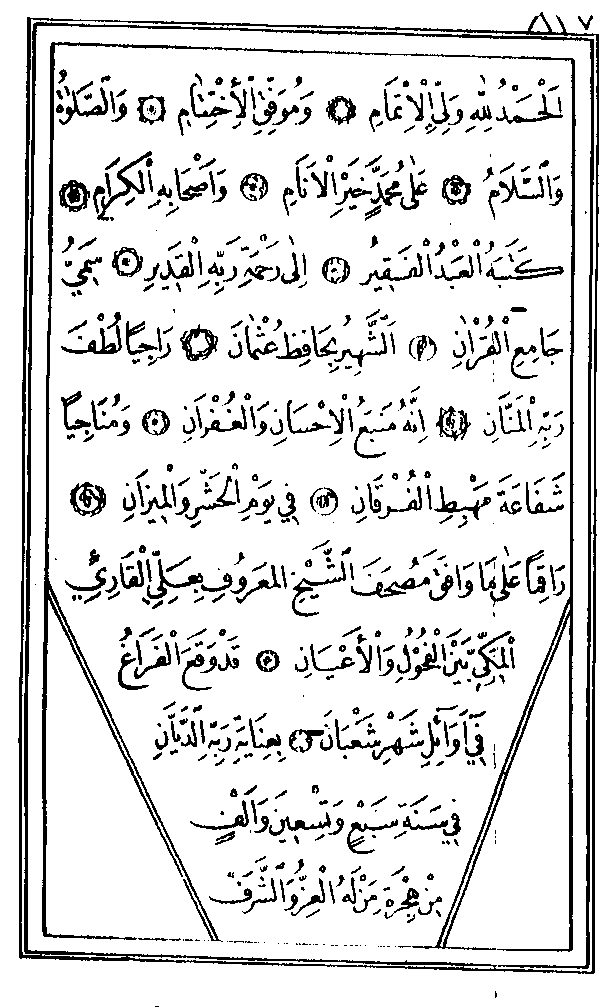 ٨١٧
اَلْحَمْدُ لِلّٰهِ وَلِيِّ الْاِتْمَامِ وَمُوَفِّقِ الْاِخْتِتَامِ وَالصَّلٰوةُ
وَالسَّلَامُ عَلٰى مُحَمَّدٍ خَيْرِ الْاَنَامِ وَاَصْحَابِهِ الْكِرَامِ
كَتَبَهُ الْعَبْدُ الْفَقِيرُ اِلٰى رَحْمَةِ رَبِّهِ الْقَدِيرِ سَمِيُّ
جَامِعِ الْقُرْاٰنِ اَلشَّهِيرُ بِحَافِظِ عُثْمَانَ رَاجِيًا لُطْفَ
رَبِّهِ الْمَنَّانِ اِنَّهُ مَنْبَعُ الْاِحْسَانِ وَالْغُفْرَانِ وَمُنَاجِيًا
شَفَاعَةَ مَهْبِطِ الْفُرْقَانِ فِي يَوْمِ الْحَشْرِ وَالْمِيزَانِ
رَاقِمًا عَلٰى مَا وَافَقَ مَصْحَفَ الشَّيْخِ الْمَعْرُوفِ بِعَلِيِّ الْقَارِئِ
الْمَكِّيِّ بَيْنَ الْفُحُولِ وَالْاَعْيَانِ قَدْ وَقَعَ الْفَرَاغُ
فِي اَوَائِلِ شَهْرِ شَعْبَانَ بِعِنَايَةِ رَبِّهِ الدَّيَّانِ
فِي سَنَةِ سَبْعٍ وَتِسْعِينَ وَاَلْفٍ
مِنْ هِجْرَةِ مَنْ لَهُ الْعِزُّ وَالشَّرَفُ